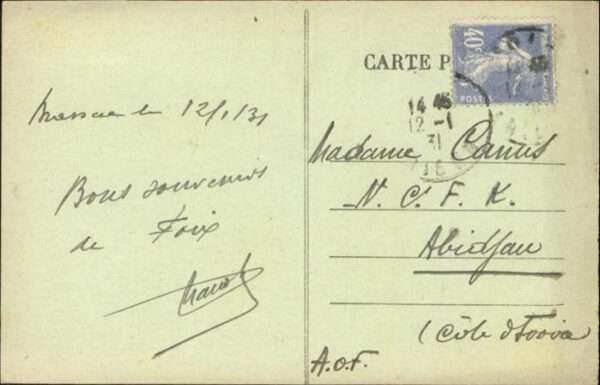 12/1/31
Bons souvenirs
de Foix
CARTE P
40c
POSTES
14 45
12 -1
31
Madame Camus
N. C. F. K.
Abidjan
(Côte d'Ivoire)
A.O.F.